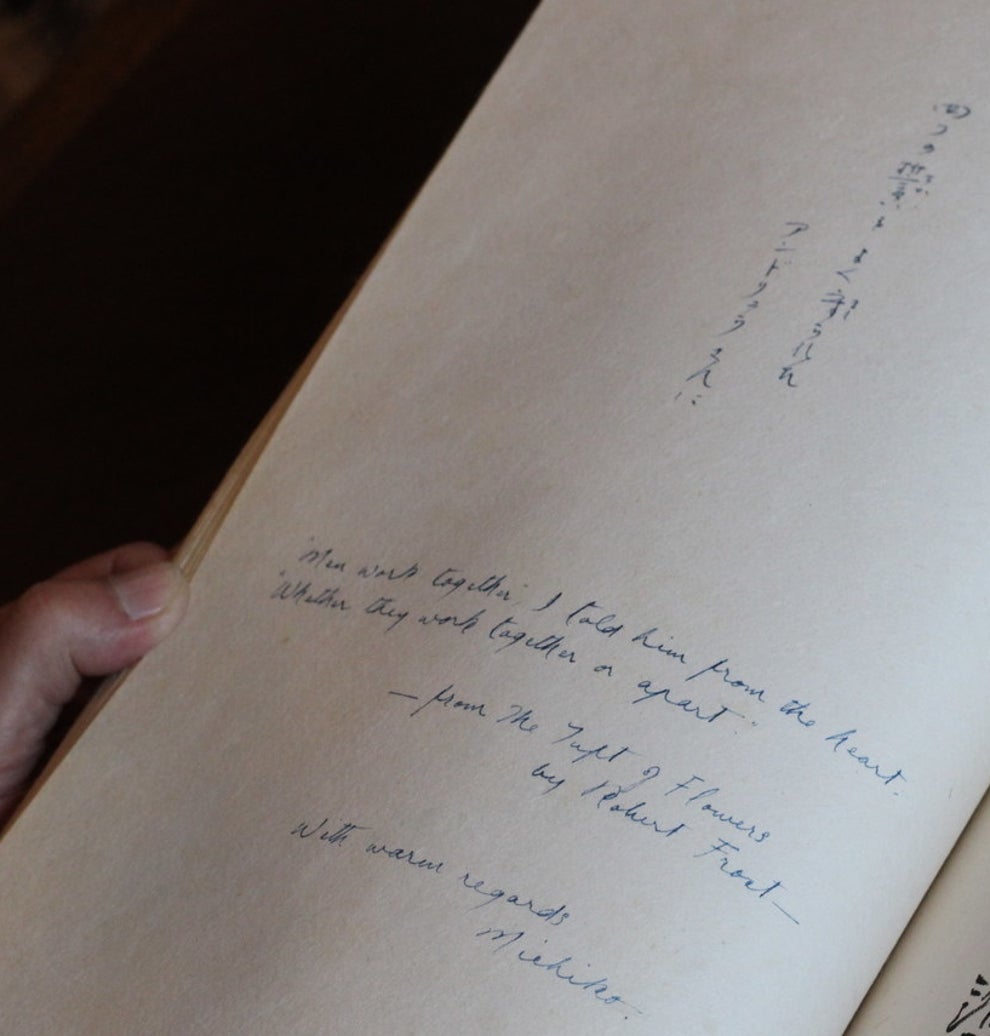 四つの よく られた
アンドリュウ さんに
'Men work together', I told him from the heart.
'Whether they work together or apart.'
— from The Tuft of Flowers
by Robert Frost —
With warm regards
Michiko